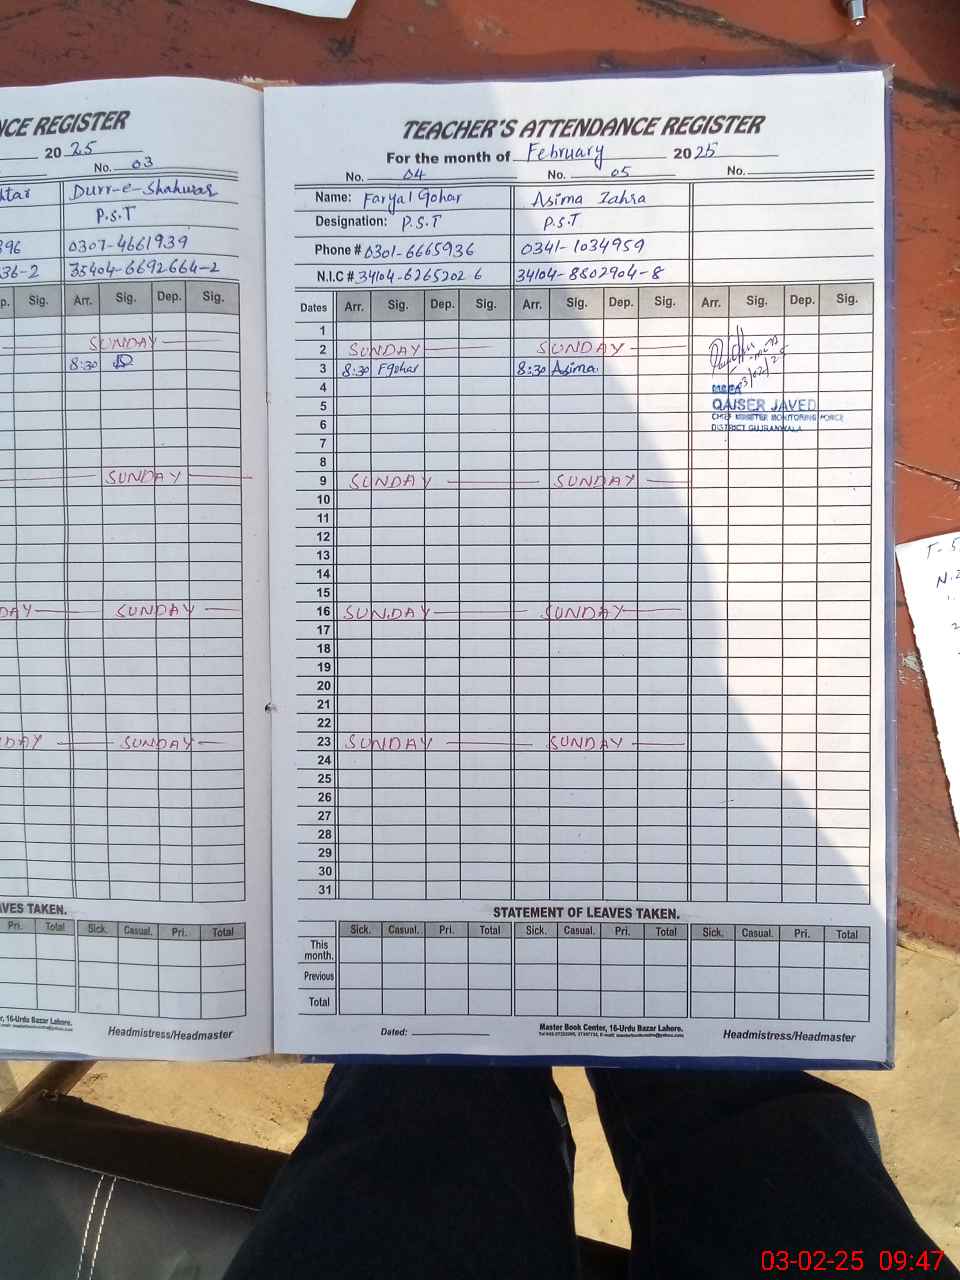 NCE REGISTER
20 25
No. 03
htar Durr-e-Shahwar
P.S.T
396 0307-4661939
36-2 35404-6692664-2
p. Sig. Arr. Sig. Dep. Sig.
SUNDAY
8:30
SUNDAY
DAY SUNDAY
DAY SUNDAY
AVES TAKEN.
Pri. Total Sick. Casual. Pri. Total
r, 16-Urdu Bazar Lahore.
Headmistress/Headmaster
TEACHER'S ATTENDANCE REGISTER
For the month of February 2025
No. 04 No. 05 No.
Name: Faryal Gohar Asima Zahra
Designation: P.S.T P.S.T
Phone # 0301-6665936 0341-1034959
N.I.C # 34104-6265202 6 34104-8802904-8
Dates Arr. Sig. Dep. Sig. Arr. Sig. Dep. Sig. Arr. Sig. Dep. Sig.
1
2 SUNDAY SUNDAY
3 8:30 Fgohar 8:30 Asima
03/02/25
4
MEA
5 QAISER JAVED
6 CHIEF MINISTER MONITORING FORCE
DISTRICT GUJRANWALA
7
8
9 SUNDAY SUNDAY
10
11
12
13
14
15
16 SUNDAY SUNDAY
17
18
19
20
21
22
23 SUNDAY SUNDAY
24
25
26
27
28
29
30
31
STATEMENT OF LEAVES TAKEN.
Sick. Casual. Pri. Total Sick. Casual. Pri. Total Sick. Casual. Pri. Total
This month.
Previous
Total
Dated:
Master Book Center, 16-Urdu Bazar Lahore.
Headmistress/Headmaster
T-5
N.2
03-02-25 09:47